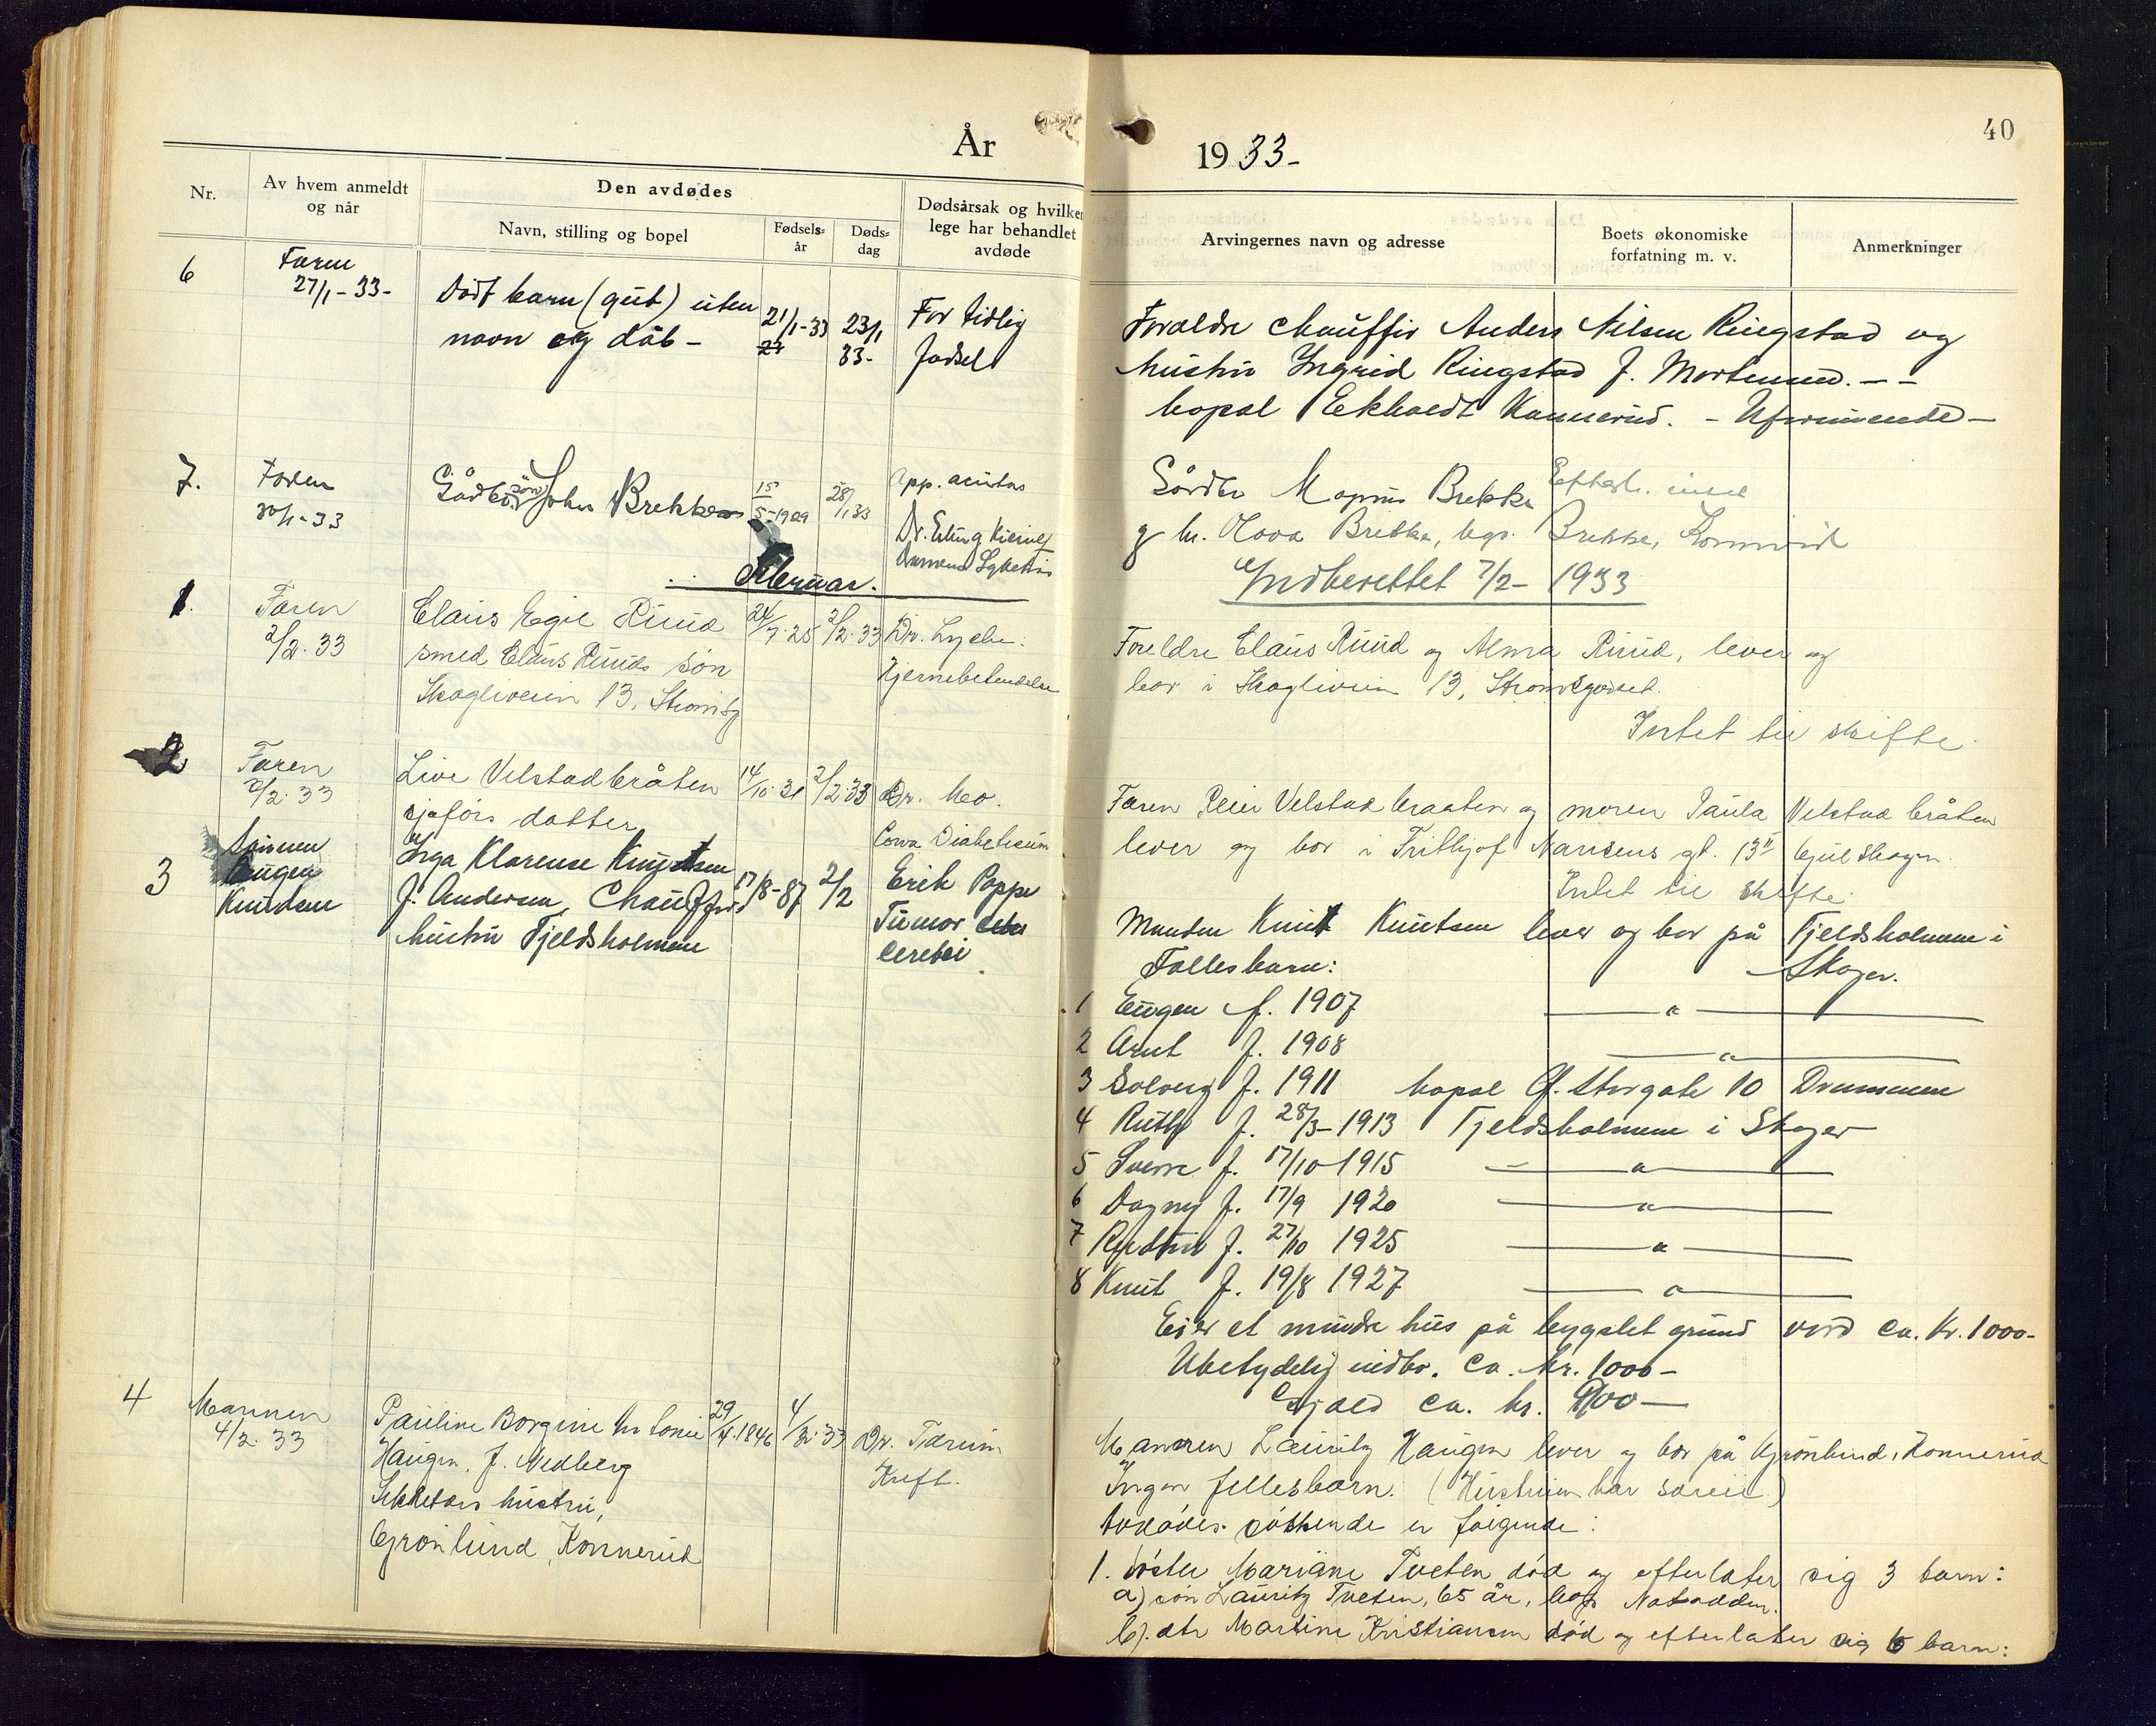 År 1933-
40
Nr.
Av hvem anmeldt
og når
Den avdødes
Navn, stilling og bopel
Fødsels-
år
Døds-
dag
Dødsårsak og hvilken
lege har behandlet
avdøde
Arvingernes navn og adresse
Boets økonomiske
forfatning m. v.
Anmerkninger
6
Faren
27/1-33-
Dødt barn (gut) uten
navn og dåb-
21/1-33
23/1
33-
For tidlig
fødsel
Foreldre chauffør Anders Nilsen Ringstad og
hustru Ingrid Ringstad f. Mortensen. - -
bopæl Ekholdt Konnerud. - Uformuende -
7.
Faren
30/1-33
Gårdbr. søn John Brekke
15
5-1909
28/1 33
App. acutas
Dr. Erling
Drammens Sykehus
Gårdbr Magnus Brekke
g h. Brekke, bop. Brekke, Konnerud
Indberettet 7/2- 1933
Februar.
1.
Faren
2/2. 33
Claus Egil Ruud
smed Claus Ruuds søn
Skogliveien 13, Strømsg
24/7. 25
2/2. 33
Dr. Lyche.
Hjernebetendelse
Foreldre Claus Ruud og Alma Ruud, lever og
bor i Skogliveien 13, Strømsgodset.
Intet til skifte
2
Faren
2/2. 33
Live Velstadbråten
sjåførs datter
14/10. 31
2/2. 33
Dr. Mo.
Coma Diabeticum
Faren Peter Velstadbraaten og moren Paula Velstadbråten
lever og bor i Frithjof Nansens gt. 13II Gulskogen.
Intet til skifte.
3
Sønnen
Eugen
Knutsen
Inga Klarense Knutsen
f. Andersen, Chauffør
hustru Fjeldsholmen
17/8-87
2/2
Erik Poppe
Tumor
cerebri
Manden Knut Knutsen lever og bor på Fjeldsholmen i
Skoger.
Fellesbarn:
1 Eugen f. 1907 — " —
2 Arnt f. 1908 — " —
3 Solveig f. 1911 bopæl Ø. Storgate 10 Drammen
4 Ruth f. 28/3-1913 Fjeldsholmen i Skoger
5 Sverre f. 17/10-1915 — " —
6 Dagny f. 17/9 1920 — " —
7 f. 27/10 1925 — " —
8 Knut f. 19/8 1927 — " —
Eier et mindre hus på bygslet grund verd ca. Kr. 1000-
Ubetydelig indbo. ca. kr. 1000-
Gjæld ca. kr.
4
Mannen
4/2. 33
Pauline Borgine
Haugen, f. Nedberg
hustru,
Grønlund, Konnerud
29/4. 1846
4/2. 33
Dr. Tærum
Kreft.
Mannen Lauritz Haugen lever og bor på Grønlund, Konnerud
Ingen fellesbarn. (Hustruen har særeie)
Avdødes søskende er følgende:
1. søster Mariane Tveten død og efterlater sig 3 barn:
a) søn Lauritz Tveten, 65 år, bop Notodden.
b). dtr Martine Kristiansen død og efterlater sig 6 barn: